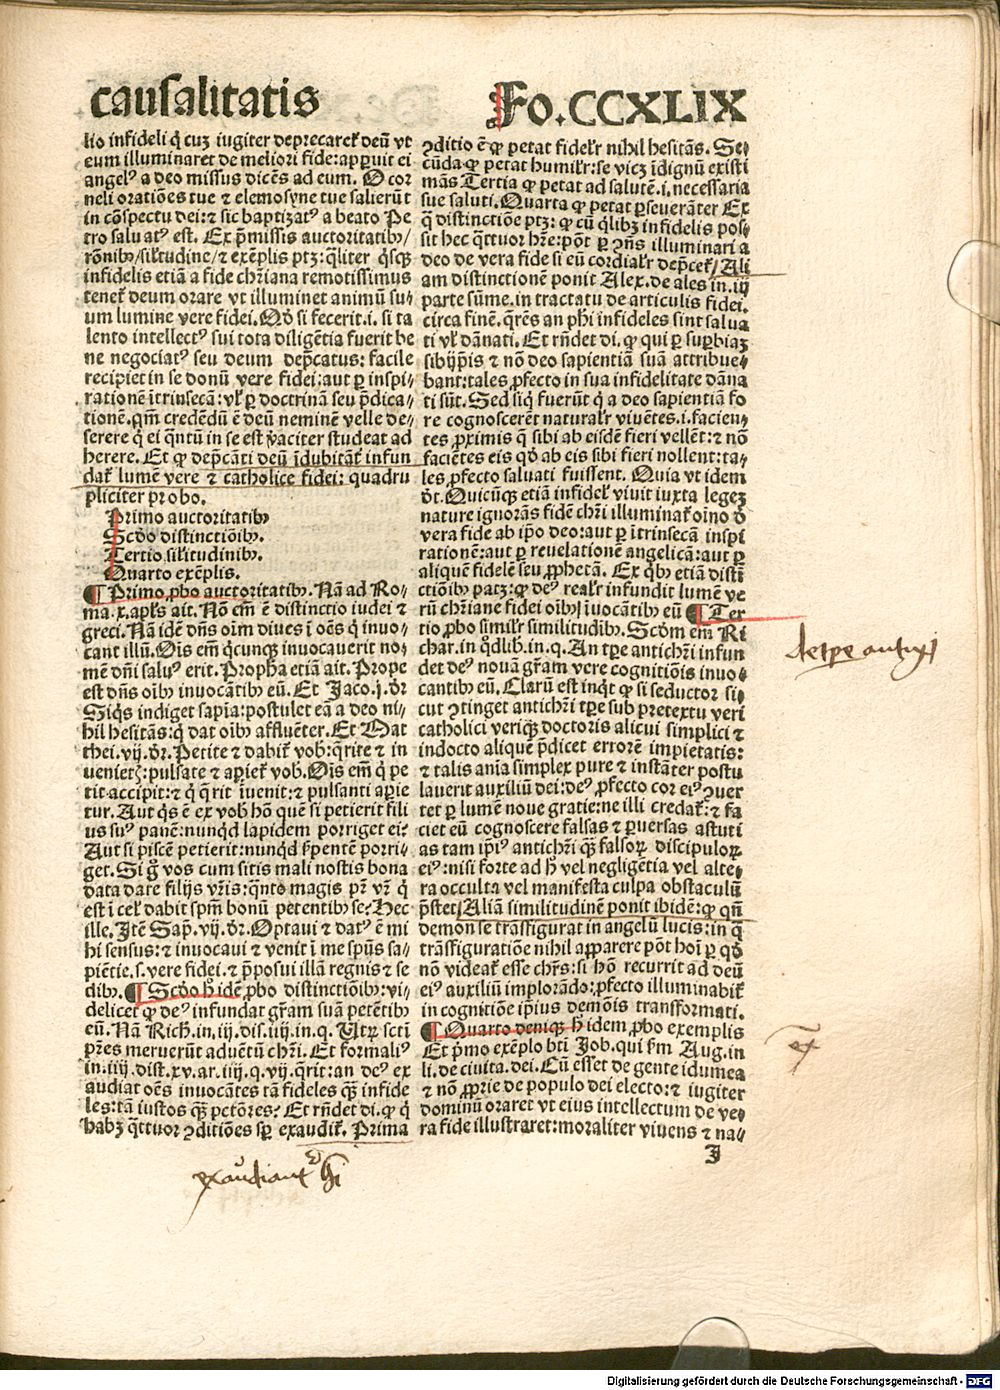 causalitatis
Fo.CCXLIX
lio infideli q̇ cuʒ iugiter deprecareť deū vt
eum illuminaret de meliori fide:apꝑuit ei
angelꝰ a deo missus dicēs ad eum. O cor
neli oratiōes tue ⁊ elemosyne tue salierūt
in cōspectu dei:⁊ sic baptizatꝰ a beato Pe
tro saluatꝰ est. Ex p̄missis auctoritatibꝫ/
rōnibꝫ/sil'tudine/⁊ exēplis ptꝫ:q̄liter q̇sqꝫ
infidelis etiā a fide chr̄iana remotissimus
teneť deum orare vt illuminet animū su⸗
um lumine vere fidei. Qḋ si fecerit.i. si ta
lento intellectꝰ sui tota diligētia fuerit be
ne negociatꝰ seu deum dep̄catus: facile
recipiet in se donū vere fidei:aut ꝑ inspi⸗
rationē ītrinsecā: vl' ꝑ doctrinā seu p̄dica⸗
tionē.qm̄ credēdū ē deū neminē velle de⸗
serere q̇ ei q̄ntū in se est ꝟaciter studeat ad
herere. Et ꝙ dep̄cāti deū īdubitāť infun
dať lumē vere ⁊ catholice fidei: quadru
pliciter probo.
Primo auctoritatibꝫ
Scḋo distinctiōibꝫ.
Tertio sil'itudinibꝫ.
Quarto exēplis.
¶ Primo ꝓbo auctoritatibꝫ. Nā ad Ro⸗
ma.x.apl's ait. Nō em̄ ē distinctio iudei ⁊
greci. Nā idē dn̄s oīm diues ī oēs q̇ inuo⸗
cant illū. Oīs em̄ q̇cunqꝫ inuocauerit no⸗
mē dn̄i saluꝰ erit. Propha etiā ait. Prope
est dn̄s oībꝫ inuocātibꝫ eū. Et Jaco.j.ďr
Siq̇s indiget sapīa:postulet eā a deo ni⸗
hil hesitās:q̇ dat oībꝫ affluēter. Et Mat
thei.vij.ďr. Petite ⁊ dabiť vob̄:q̄rite ⁊ in
uenietꝫ:pulsate ⁊ apieť vob̄.Oīs em̄ q̇ pe
tit accipit:⁊ q̇ q̄rit īuenit:⁊ pulsanti apie
tur. Aut q̇s ē ex vob̄ hō quē si petierit fili
us suꝰ panē:nunqḋ lapidem porriget ei?
Aut si piscē petierit:nunqḋ ẜpentē porri⸗
get. Si ḡ vos cum sitis mali nostis bona
data dare filijs vr̄is:q̄nto magis pr̄ vr̄ q̇
est ī cel' dabit spm̄ bonū petentibꝫ se? Hec
ille. Itē Sap̄. vij.ďr. Optaui ⁊ datꝰ ē mi
hi sensus:⁊ inuocaui ⁊ venit ī me spūs sa⸗
piētie.s.vere fidei.⁊ p̄posui illā regnis ⁊ se
dibꝫ. ¶ Scḋo h̄ idē ꝓbo distinctiōibꝫ:vi⸗
delicet ꝙ deꝰ infundat gr̄am suā petētibꝫ
eū. Nā Rich̄.in.iij.dis.iiij.in.q. Utꝝ scti
pr̄es meruerūt aduētū chr̄i. Et formaliꝰ
in.iiij.dist.xv.ar.iiij.q.vij.q̄rit:an deꝰ ex
audiat oēs inuocātes tā fideles qꝫ infide
les:tā iustos qꝫ petōres? Et rn̄det di.ꝙ q̇
habꝫ q̄ttuor ꝯditiōes sꝑ exaudiť. Prima
ꝯditio ē ꝙ petat fidel'r nihil hesitās. Se⸗
cūda ꝙ petat humil'r:se vicꝫ īdignū existi
mās Tertia ꝙ petat ad salutē.i.necessaria
sue saluti. Quarta ꝙ petat ꝑseuerāter Ex
q̄ distinctiōe ptꝫ: ꝙ cū q̇libꝫ infidelis pos⸗
sit hec q̄ttuor hr̄e:pōt ꝑ ꝯn̄s illuminari a
deo de vera fide si eū cordial'r dep̄ceť/ Ali
am distinctionē ponit Alex.de ales in.iij
parte sūme.in tractatu de articulis fidei.
circa finē. q̄rēs an phī infideles sint salua
ti vl' dānati. Et rn̄det di. ꝙ qui ꝑ suꝑbiaꝫ
sibijpīs ⁊ nō deo sapientiā suā attribue⸗
bant:tales ꝓfecto in sua infidelitate dāna
ti sūt. Sed siq̇ fuerūt q̇ a deo sapientiā fo
re cognoscerēt natural'r viuētes.i.facien⸗
tes ꝓximis q̄ sibi ab eisdē fieri vellēt:⁊ nō
faciētes eis qḋ ab eis sibi fieri nollent:ta⸗
les ꝓfecto saluati fuissent. Quia vt idem
ďt. Quicūqꝫ etiā infidel' viuit iuxta legeꝫ
nature ignorās fidē chr̄i illuminať oīno ď
vera fide ab ip̄o deo:aut ꝑ ītrinsecā inspi
rationē:aut ꝑ reuelationē angelicā:aut ꝑ
aliquē fidelē seu ꝓphetā. Ex q̇bꝫ etiā distī
ctiōibꝫ patꝫ:ꝙ deꝰ real'r infundit lumē ve
rū chr̄iane fidei oībꝫ īuocātibꝫ eū ¶ Ter
tio ꝓbo simil'r similitudībꝫ. Scḋm em̄ Ri
char.in q̊dlib̄.in.q. An tꝑe antichr̄i infun
det deꝰ nouā gr̄am vere cognitiōis inuo⸗
cantibꝫ eū. Clarū est inq̇t ꝙ si seductor si⸗
cut ꝯtinget antichr̄i tꝑe sub pretextu veri
catholici veriqꝫ doctoris alicui simplici ⁊
indocto aliquē p̄dicet errorē impietatis:
⁊ talis aīa simplex pure ⁊ instāter postu
lauerit auxiliū dei:deꝰ ꝓfecto cor eiꝰ ꝯuer
tet ꝑ lumē noue gratie:ne illi credať:⁊ fa
ciet eū cognoscere falsas ⁊ ꝑuersas astuti
as tam ip̄iꝰ antichr̄i qꝫ falsoꝝ discipuloꝝ
eiꝰ:nisi forte ad h̄ vel negligētia vel alte⸗
ra occulta vel manifesta culpa obstaculū
p̄stet/Aliā similitudinē ponit ibidē:ꝙ qn̄
demon se trāsfigurat in angelū lucis:in q̄
trāsfiguratiōe nihil apparere pōt hoī ꝑ qḋ
nō videať esse chr̄s:si hō recurrit ad deū
eiꝰ auxiliū implorādo:ꝓfecto illuminabiť
in cognitiōe ip̄ius demōis transformati.
¶ Quarto deniqꝫ h̄ idem ꝓbo exemplis
Et p̄mo exēplo btī Job.qui ẜm Aug.in
li.de ciuita.dei. Cū esset de gente idumea
⁊ nō ꝓprie de populo dei electo:⁊ iugiter
dominū oraret vt eius intellectum de ve⸗
ra fide illustraret:moraliter viuens ⁊ na⸗
J
de tꝑe antixi
exaudiant
Digitalisierung gefördert durch die Deutsche Forschungsgemeinschaft - DFG